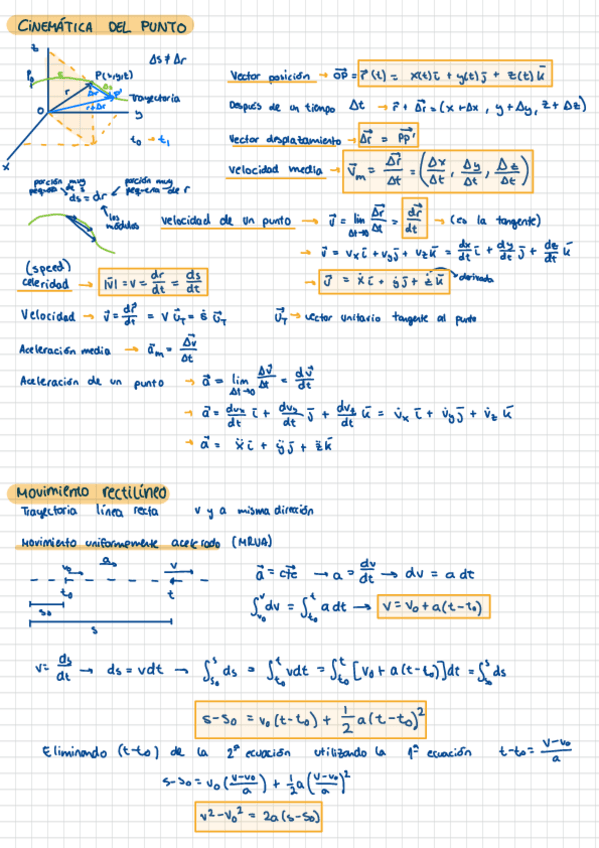 CINEMÁTICA DEL PUNTO
z
Δs ≠ Δr
P₀ s P(x,y,z) Δs
r Δr P'
r+Δr Trayectoria
O y
x
t₀ → t₁
Vector posición → OP⃗ = r⃗(t) = x(t) i⃗ + y(t) j⃗ + z(t) k⃗
Después de un tiempo Δt → r⃗ + Δr⃗ = (x+Δx, y+Δy, z+Δz)
Vector desplazamiento → Δr⃗ = PP'⃗
Velocidad media → v⃗ₘ = Δr⃗/Δt = (Δx/Δt, Δy/Δt, Δz/Δt)
porción muy pequeña de s
porción muy pequeña de r
ds = dr
los módulos
Velocidad de un punto → v⃗ = lim Δt→0 Δr⃗/Δt = dr⃗/dt → (es la tangente)
→ v⃗ = vₓ i⃗ + vᵧ j⃗ + v_z k⃗ = dx/dt i⃗ + dy/dt j⃗ + dz/dt k⃗
→ v⃗ = ẋ i⃗ + ẏ j⃗ + ż k⃗ derivada
(speed)
celeridad → |v⃗| = v = dr/dt = ds/dt
Velocidad → v⃗ = dr⃗/dt = v u⃗_T = ṡ u⃗_T
u⃗_T → vector unitario tangente al punto
Aceleración media → a⃗ₘ = Δv⃗/Δt
Aceleración de un punto → a⃗ = lim Δt→0 Δv⃗/Δt = dv⃗/dt
→ a⃗ = dvₓ/dt i⃗ + dvᵧ/dt j⃗ + dv_z/dt k⃗ = v̇ₓ i⃗ + v̇ᵧ j⃗ + v̇_z k⃗
→ a⃗ = ẍ i⃗ + ÿ j⃗ + z̈ k⃗
Movimiento rectilíneo
Trayectoria línea recta v y a misma dirección
Movimiento uniformemente acelerado (MRUA)
v₀ a v
t₀ t
s₀
s
a⃗ = cte → a = dv/dt → dv = a dt
∫_{v₀}^{v} dv = ∫_{t₀}^{t} a dt → v = v₀ + a(t-t₀)
v = ds/dt → ds = v dt → ∫_{s₀}^{s} ds = ∫_{t₀}^{t} v dt = ∫_{t₀}^{t} [v₀ + a(t-t₀)] dt = ∫_{s₀}^{s} ds
s-s₀ = v₀(t-t₀) + 1/2 a(t-t₀)²
Eliminando (t-t₀) de la 2ª ecuación utilizando la 1ª ecuación t-t₀ = v-v₀/a
s-s₀ = v₀(v-v₀/a) + 1/2 a(v-v₀/a)²
v²-v₀² = 2a(s-s₀)